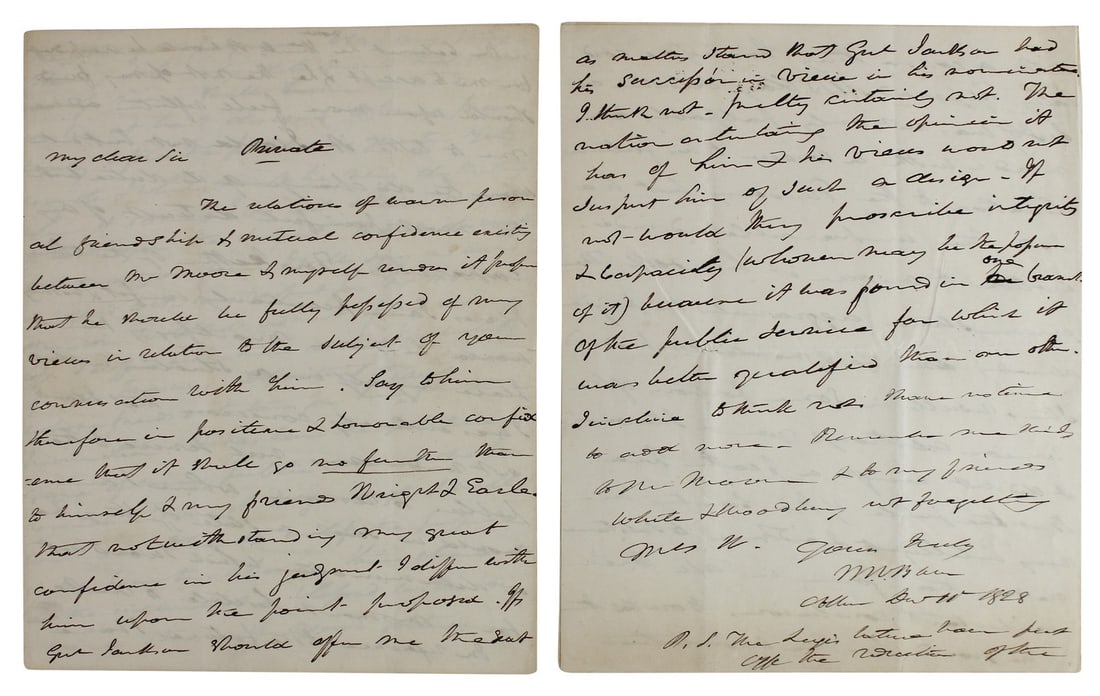 My dear Sir Private
The relations of warm person
al friendship & mutual confidence existing
between Mr Moore & myself renders it proper
that he should be fully possessed of my
views in relation to the subject of your
conversation with him. Say to him
therefore in positive & honorable confid
ence that it shall go no further than
to himself & my friends Wright & Earle
that notwithstanding my great
confidence in his judgment I differ with
him upon the point proposed. If
Genl Jackson should offer me the seat
as matters stand that Genl Jackson had
his succession in view in his nomination.
I think not - pretty certainly not. The
nation entertaining the opinion it
has of him & his views would not
suspect him of such a design - If
not - would they proscribe integrity
& capacity (whoever may be the
of it) because it was found in one branch
of the public service for which it
was better qualified than any other.
I incline to think not. I have no time
to add more. Remember me kindly
to Mr Moore & to my friends
White & Woodbury not forgetting
Mrs W. Yours truly
M V Buren
Decr 10 1828
P. S. The Legislature have put
off the election of the